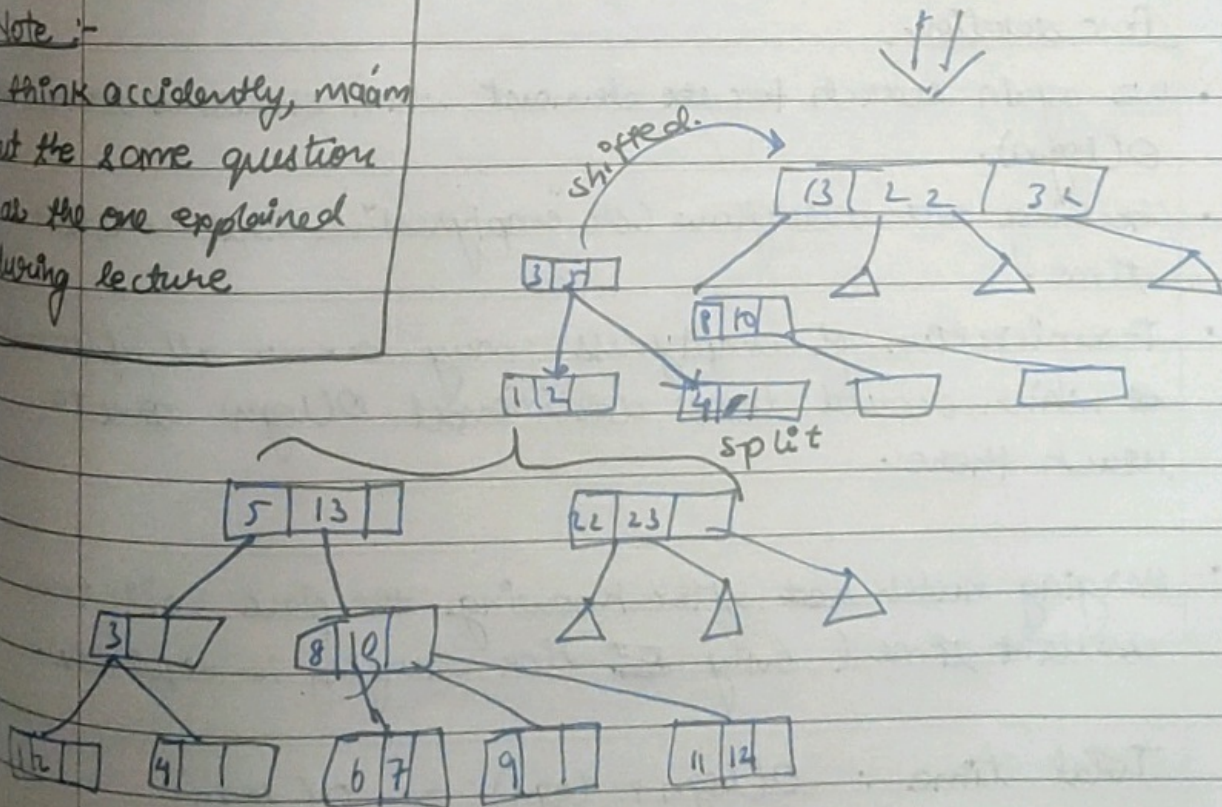 Note :-
think accidently, maám
the same question
as the one explained
during lecture
shifted.
13 22 32
3 5
8 10
1 2 4
split
5 13 22 23
3 8 10
1 2 4 6 7 9 11 12